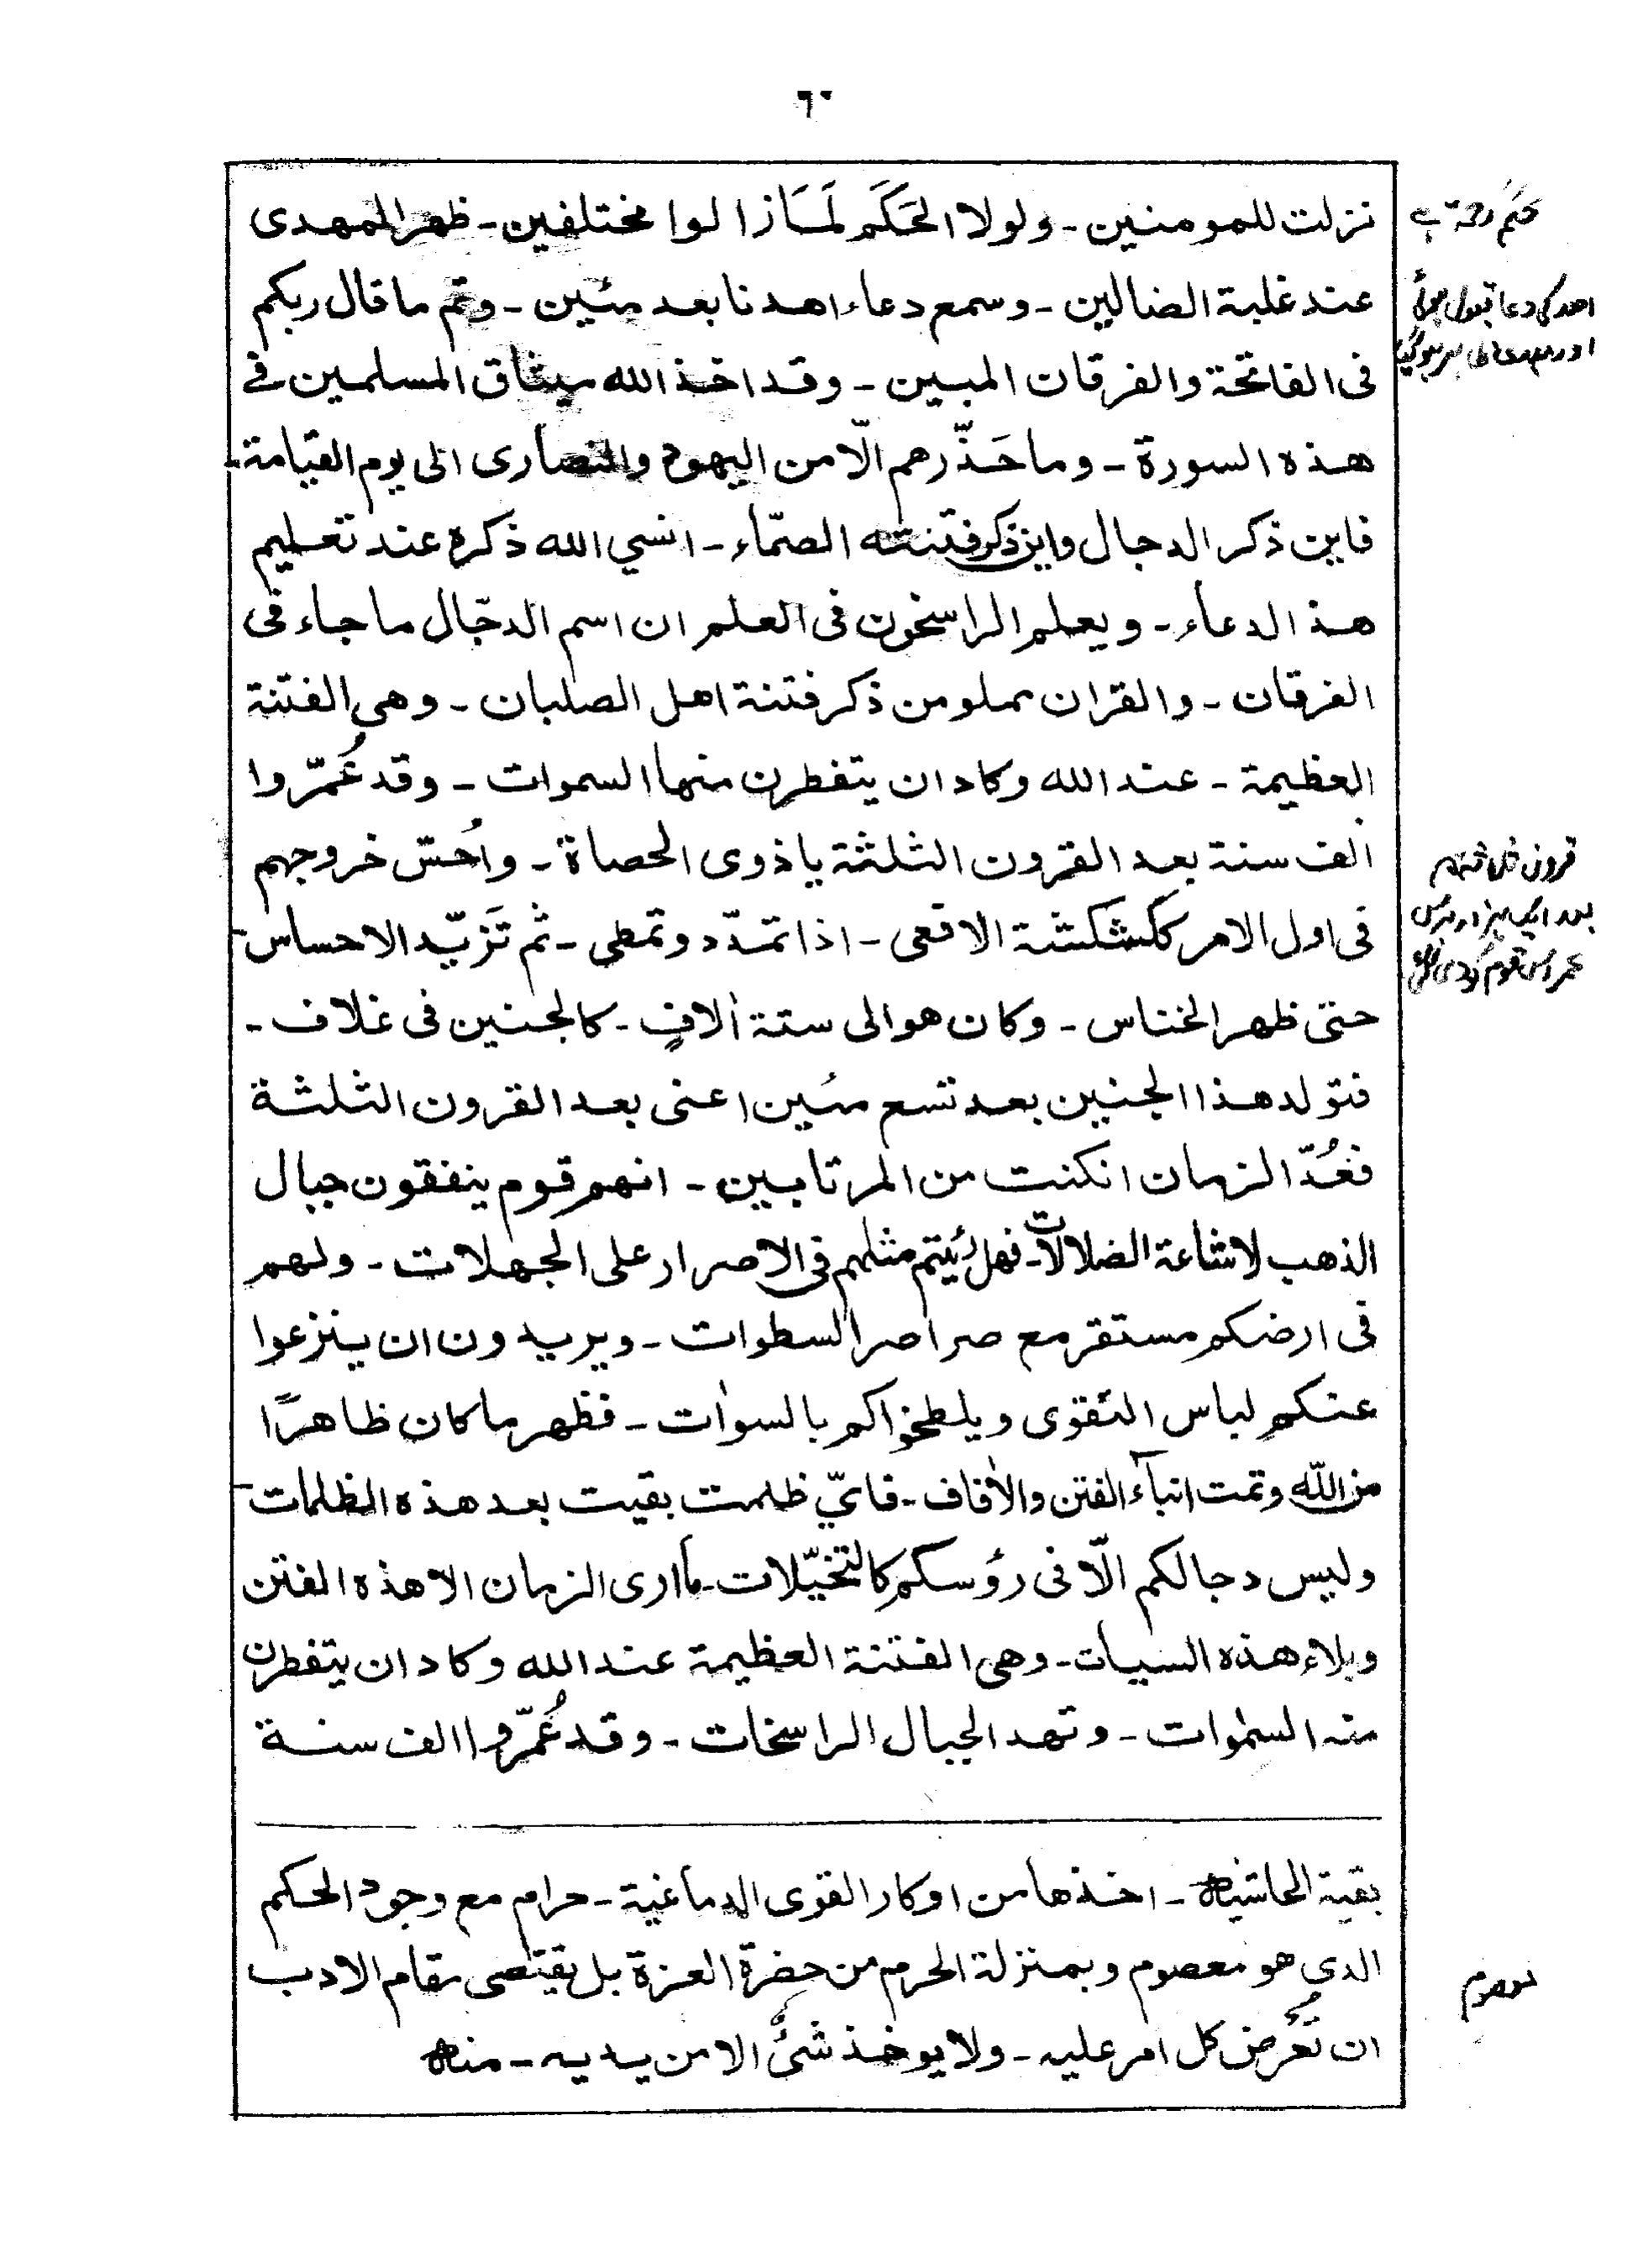 ٦٠
نزلت للمومنين ـ ولولا الحَكَم لَمَا زالوا مختلفين ـ ظهر المهدى
عند غلبة الضالين ـ وسمع دعاء اهدنا بعد مئين ـ وتم ما قال ربكم
فى الفاتحة والفرقان المبين ـ وقد اخذ الله ميثاق المسلمين فے
هذه السورة ـ وما حَذّرهم الّا من اليهود والنصارى الى يوم القيامة ـ
فاين ذكر الدجال واين ذكر فتنته الصمّاء ـ انسي الله ذكره عند تعليم
هذا الدعاء ـ ويعلم الراسخون فى العلم ان اسم الدجّال ما جاء فى
الفرقان ـ والقران مملو من ذكر فتنة اهل الصلبان ـ وهى الفتنة
العظيمة ـ عند الله وكاد ان يتفطرن منها السموات ـ وقد عُمّروا
الف سنة بعد القرون الثلثة يا ذوى الحصاة ـ واُحسّ خروجهم
فى اول الامر ككشكشة الافعى ـ اذا تمدّد وتمطى ـ ثم تَزيّد الاحساس ـ
حتى ظهر الخناس ـ وكان هو الى ستة اٰلافٍ ـ كالجنين فى غلاف ـ
فتولد هذا الجنين بعد تسع مئين اعنى بعد القرون الثلثة
فعُدّ الزمان انكنت من المرتابين ـ انهم قوم ينفقون جبال
الذهب لاشاعة الضلالات ـ فهل رئيتم مثلهم فى الاصرار على الجهلات ـ ولهم
فى ارضكم مستقر مع صراصر السطوات ـ ويريدون ان ينزعوا
عنكم لباس التقوى ويلطخواكم بالسواٰت ـ فظهر ما كان ظاهرًا
من اللّٰه وتمت انباء الفتن والاٰفاف ـ فاىّ ظلمت بقيت بعد هذه الظلمات ـ
وليس دجالكم الّا فى رؤسكم كالتخيّلات ـ ما ارى الزمان الا هذه الفتن
وبلاء هذه السيات ـ وهى الفتنة العظيمة عند الله وكاد ان يتفطرن
منه السمٰوات ـ وتهد الجبال الراسخات ـ وقد عُمّروا الف سنة
بقية الحاشيه ـ اخذها من اوكار القوى الدماغية ـ حرام مع وجود الحكم
الذى هو معصوم وبمنزلة الحرم من حضرة العزة بل يقتضى مقام الادب
ان تُعرض كل امر عليه ـ ولا يوخذ شئٌ الا من يديه ـ منه
حَکَم رحمة ہے
اهد کی دعا قبول ہوئی
قرون ثلاثہ کے
بعد ایک ہزار برس